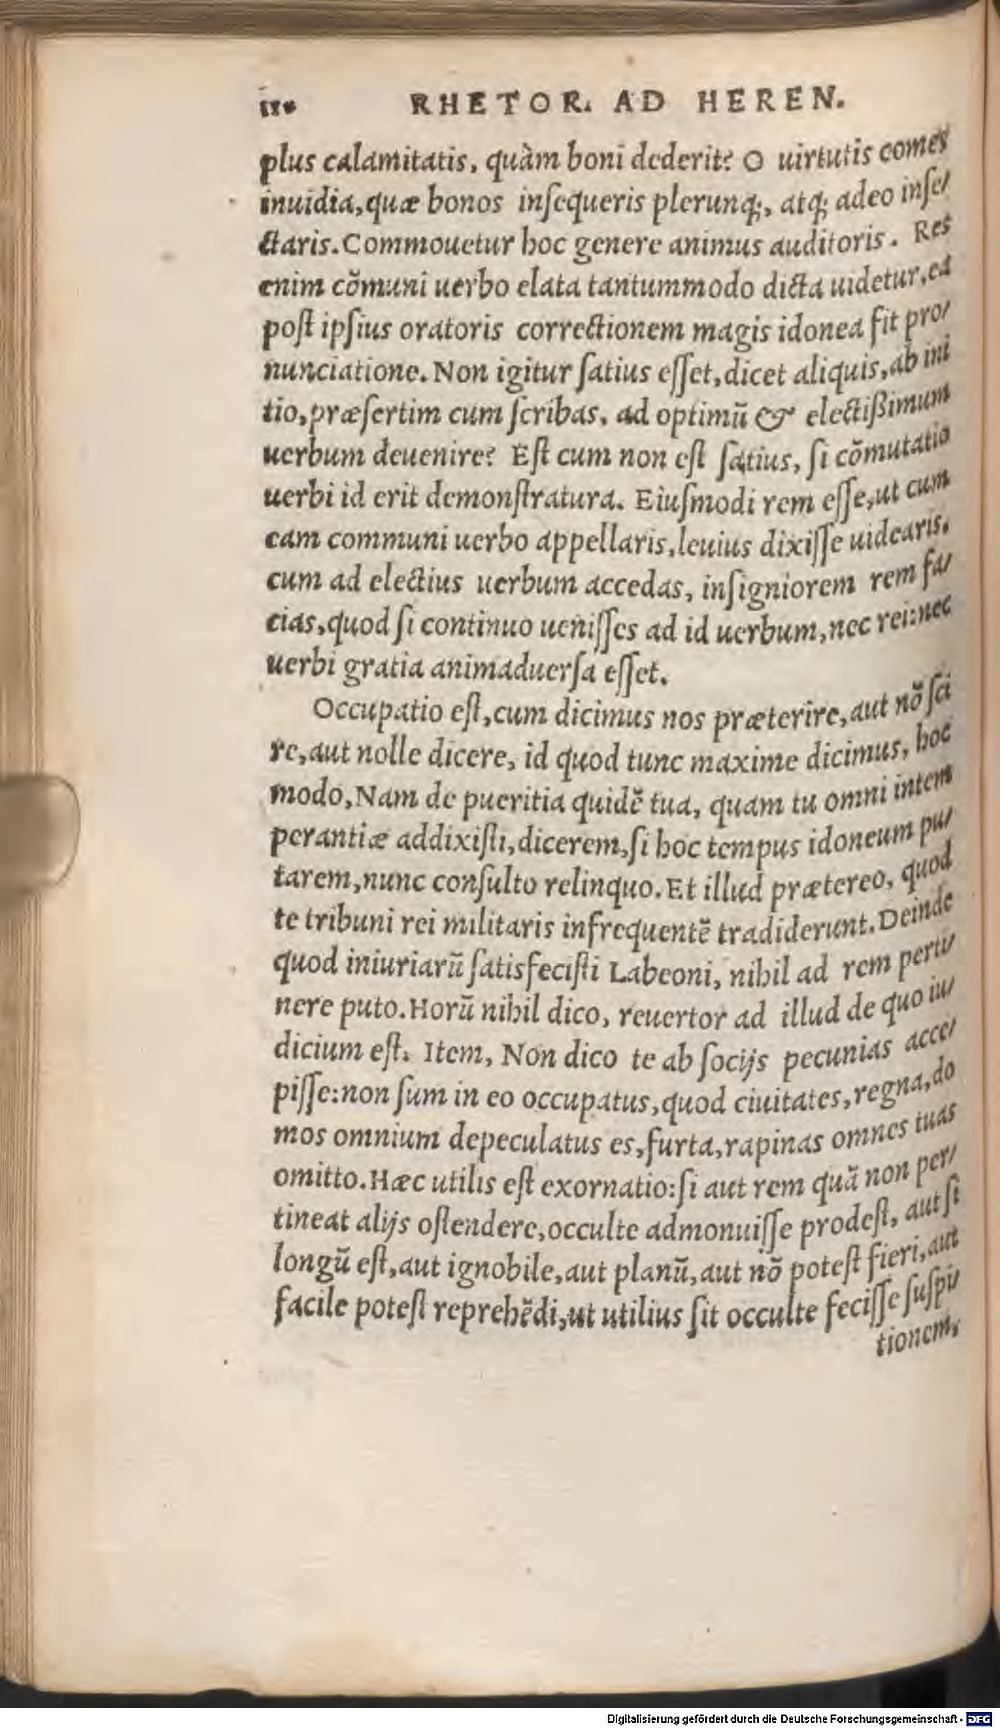 110 RHETOR. AD HEREN.
plus calamitatis, quàm boni dederit? O uirtutis comes
inuidia, quæ bonos insequeris plerunq;, atq; adeo inse/
ctaris. Commouetur hoc genere animus auditoris. Res
enim cõmuni uerbo elata tantummodo dicta uidetur, ea
post ipsius oratoris correctionem magis idonea fit pro/
nunciatione. Non igitur satius esset, dicet aliquis, ab ini
tio, præsertim cum scribas, ad optimũ & electißimum
uerbum deuenire? Est cum non est satius, si cõmutatio
uerbi id erit demonstratura. Eiusmodi rem esse, ut cum
eam communi uerbo appellaris, leuius dixisse uidearis.
cum ad electius uerbum accedas, insigniorem rem fa/
cias, quod si continuo uenisses ad id uerbum, nec rei: nec
uerbi gratia animaduersa esset.
Occupatio est, cum dicimus nos præterire, aut nõ sci
re, aut nolle dicere, id quod tunc maxime dicimus, hoc
modo, Nam de pueritia quidẽ tua, quam tu omni intem
perantiæ addixisti, dicerem, si hoc tempus idoneum pu/
tarem, nunc consulto relinquo. Et illud prætereo, quod
te tribuni rei militaris infrequentẽ tradiderunt. Deinde
quod iniuriarũ satisfecisti Labeoni, nihil ad rem perti/
nere puto. Horũ nihil dico, reuertor ad illud de quo iu/
dicium est. Item, Non dico te ab socijs pecunias acce/
pisse: non sum in eo occupatus, quod ciuitates, regna, do
mos omnium depeculatus es, furta, rapinas omnes tuas
omitto. Hæc utilis est exornatio: si aut rem quã non per/
tineat alijs ostendere, occulte admonuisse prodest, aut si
longũ est, aut ignobile, aut planũ, aut nõ potest fieri, aut
facile potest reprehẽdi, ut utilius sit occulte fecisse suspi/
tionem,
Digitalisierung gefördert durch die Deutsche Forschungsgemeinschaft - DFG